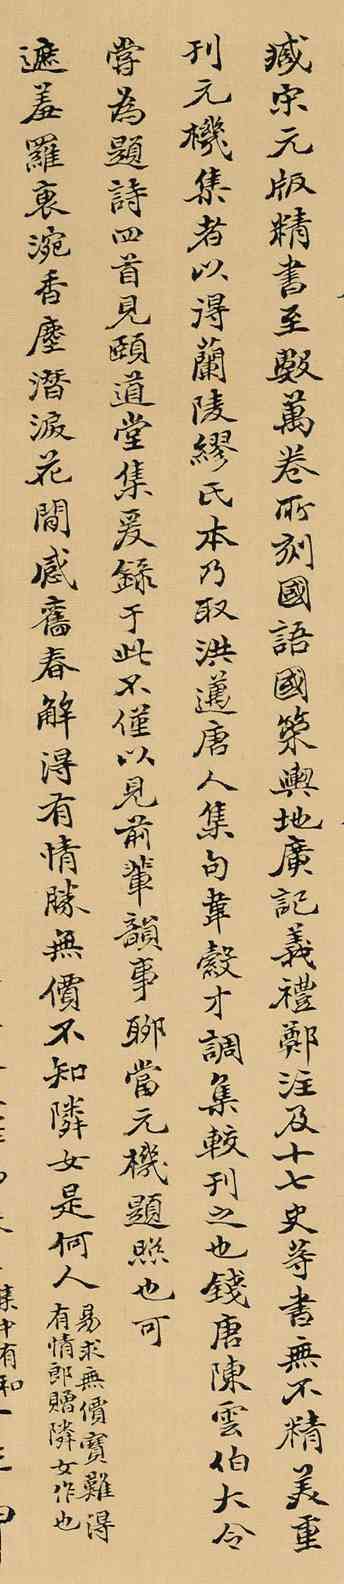 臧宋元版精書至數萬卷所刻國語國策輿地廣記義禮鄭注及十七史等書無不精美重
刊元機集者以得蘭陵繆氏本乃取洪邁唐人集句韋縠才調集較刊之也錢唐陳雲伯大令
嘗為題詩四首見頤道堂集爰錄于此不僅以見前輩韻事聊當元機題照也可
遮羞羅裏涴香塵潛淚花間感舊春解得有情勝無價不知隣女是何人
易求無價寶難得
有情郎贈隣女作也